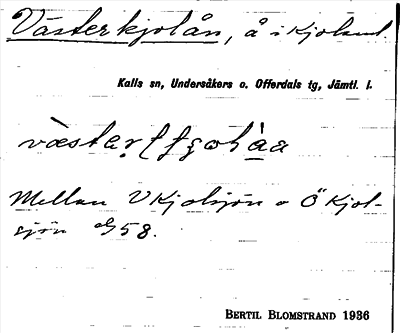 Västerkjolån, å i Kjolsund.
Kalls sn, Undersåkers o. Offerdals tg, Jämtl. l.
Mellan V Kjolsjön o Ö Kjol-
sjön 58.
BERTIL BLOMSTRAND 1936